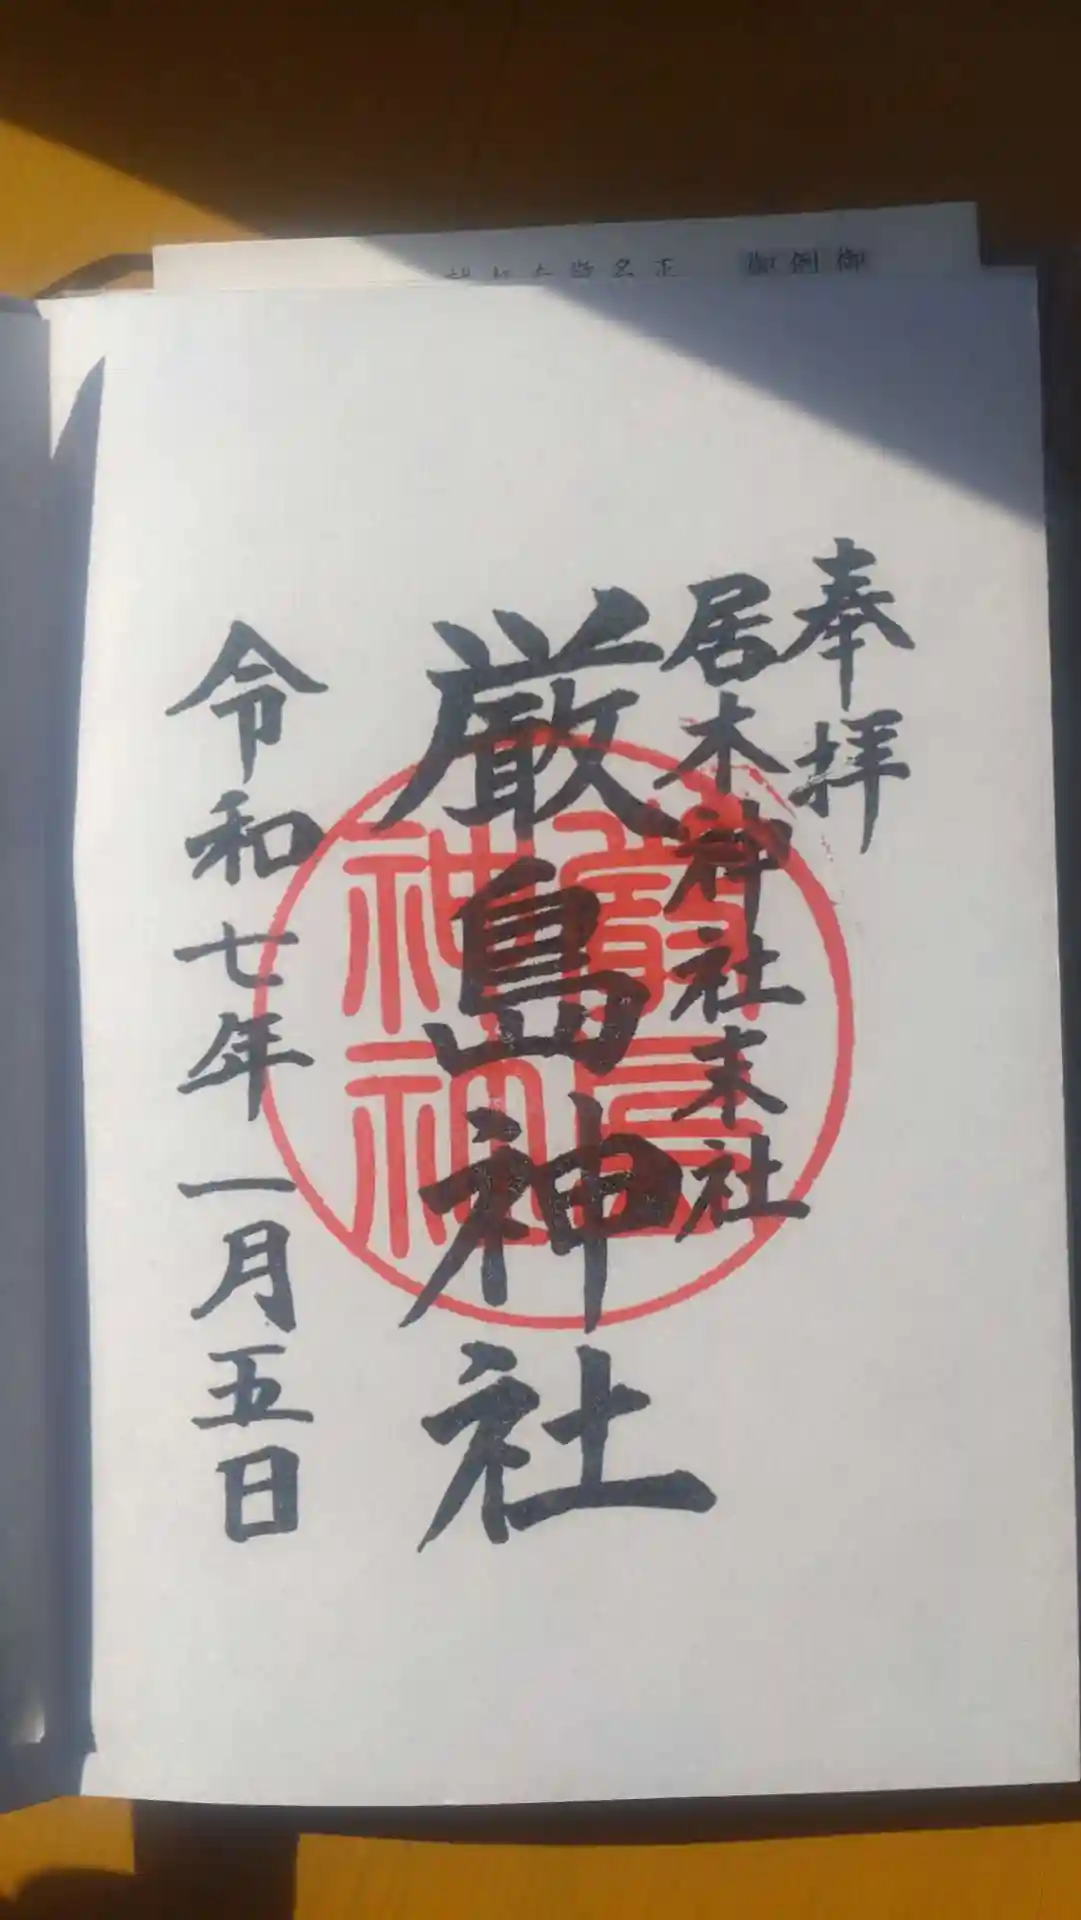 奉拝
居木神社末社
厳島神社
令和七年一月五日